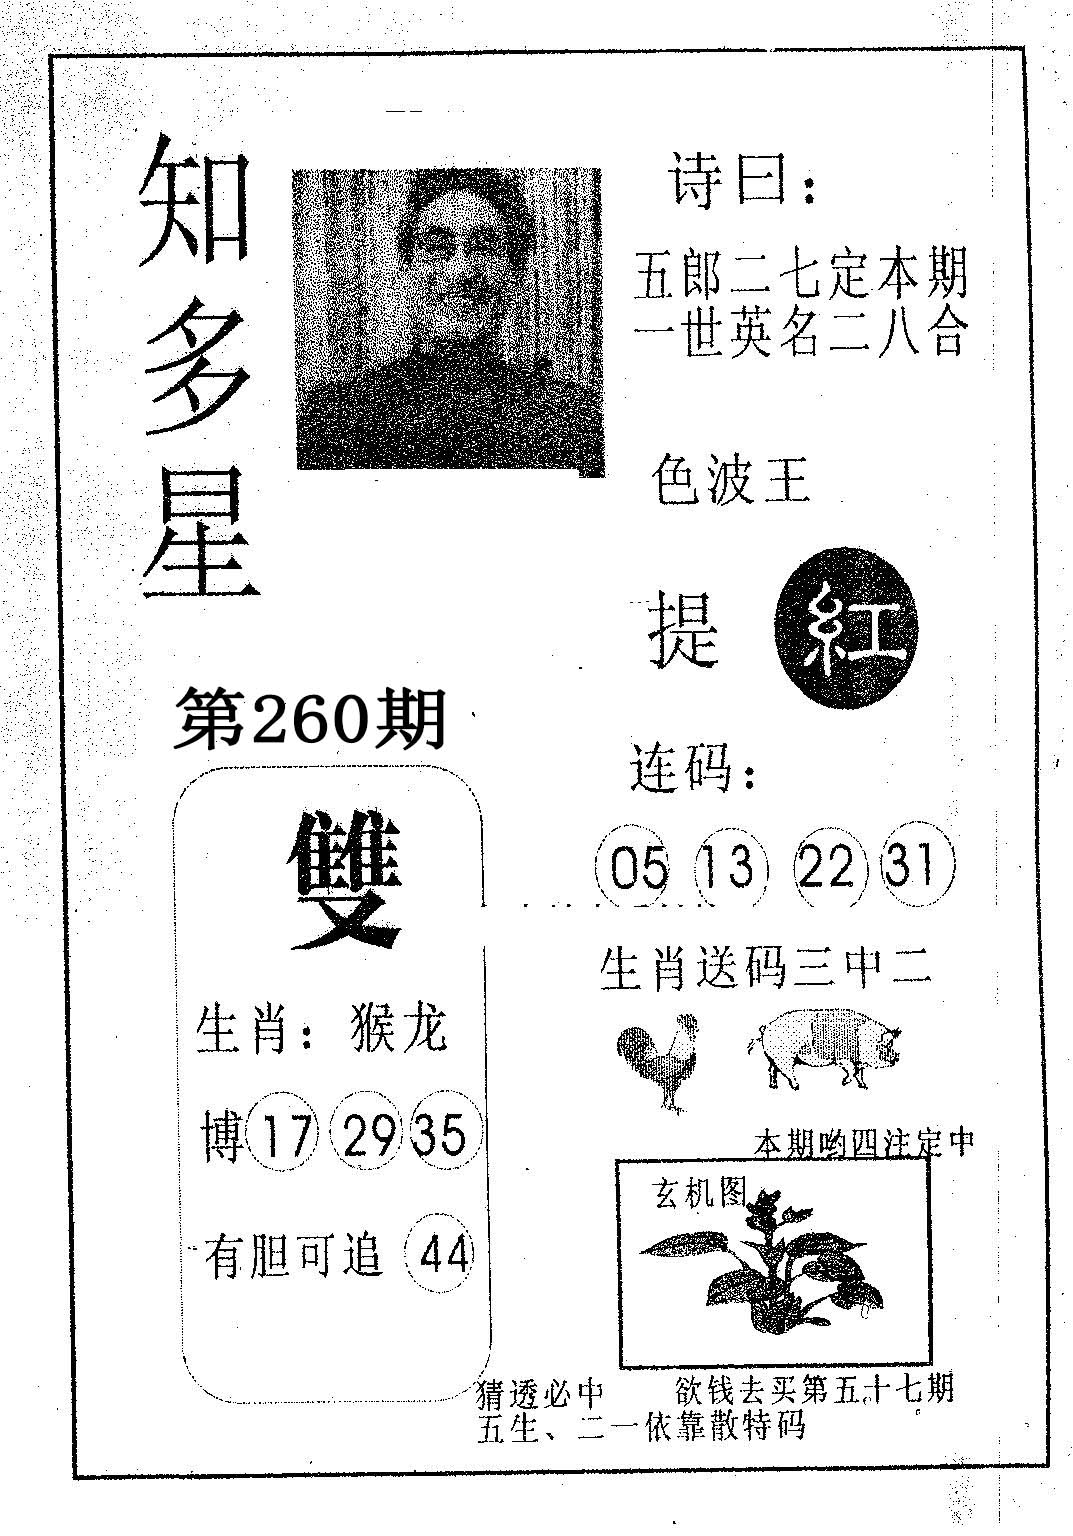 知多星
诗曰：
五郎二七定本期
一世英名二八合
色波王
提 紅
第260期
连码：
05 13 22 31
雙
生肖送码三中二
生肖：猴龙
博 17 29 35
本期哟四注定中
玄机图
有胆可追 44
猜透必中 欲钱去买第五十七期
五生、二一依靠散特码